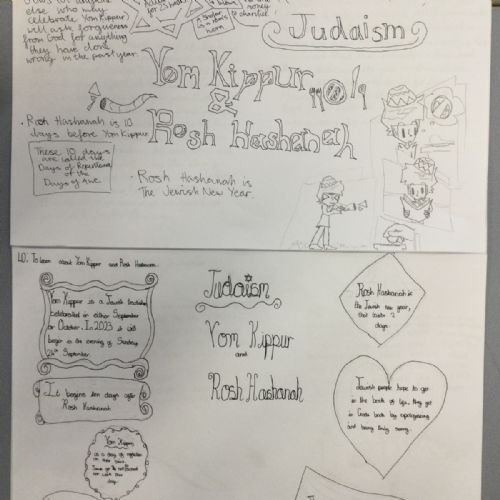 else who may
celebrate Yom Kippur
will ask forgiveness
from God for anything
they have done
wrong in the past year.
horn
money
Judaism
Yom Kippur
&
Rosh Hashanah
• Rosh Hashanah is 10
days before Yom Kippur
These 10 days
are called the
Days of Repentance
of the
Days of Awe.
• Rosh Hashanah is
The Jewish New Year.
LO: To learn about Yom Kippur and Rosh Hashanah.
Yom Kippur is a Jewish
celebrated in either September
or October. In 2023 it will
begin in the evening of Sunday
24th September
It begins ten days after
Rosh Hashanah
Yom Kippur
is a day of
day.
Judaism
Yom Kippur
and
Rosh Hashanah
Rosh Hashanah is
the Jewish new year,
that lasts 2
days.
Jewish people hope to get
in the book of life. They get
in Gods book by apologising
and being truly sorry.